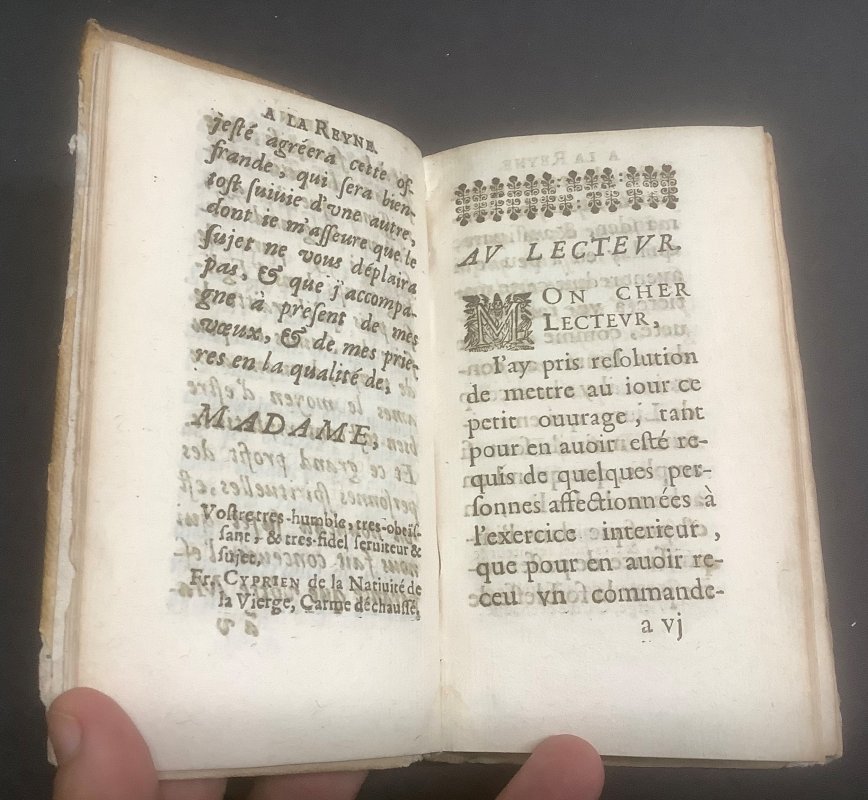 A LA REYNE
jesté agréera cette of-
frande, qui sera bien-
tost suiuie d'vne autre,
dont ie m'asseure que le
sujet ne vous déplaira
pas, & que j'accompa-
gne à present de mes
vœux, & de mes prie-
res en la qualité de,
MADAME,
Vostre tres-humble, tres-obeïs-
sant, & tres-fidel seruiteur &
sujet,
Fr. CYPRIEN de la Natiuité de
la Vierge, Carme déchaussé,
AV LECTEVR.
MON CHER
LECTEVR,
I'ay pris resolution
de mettre au iour ce
petit ouurage, tant
pour en auoir esté re-
quis de quelques per-
sonnes affectionnées à
l'exercice interieur,
que pour en auoir re-
ceu vn commande-
a vj